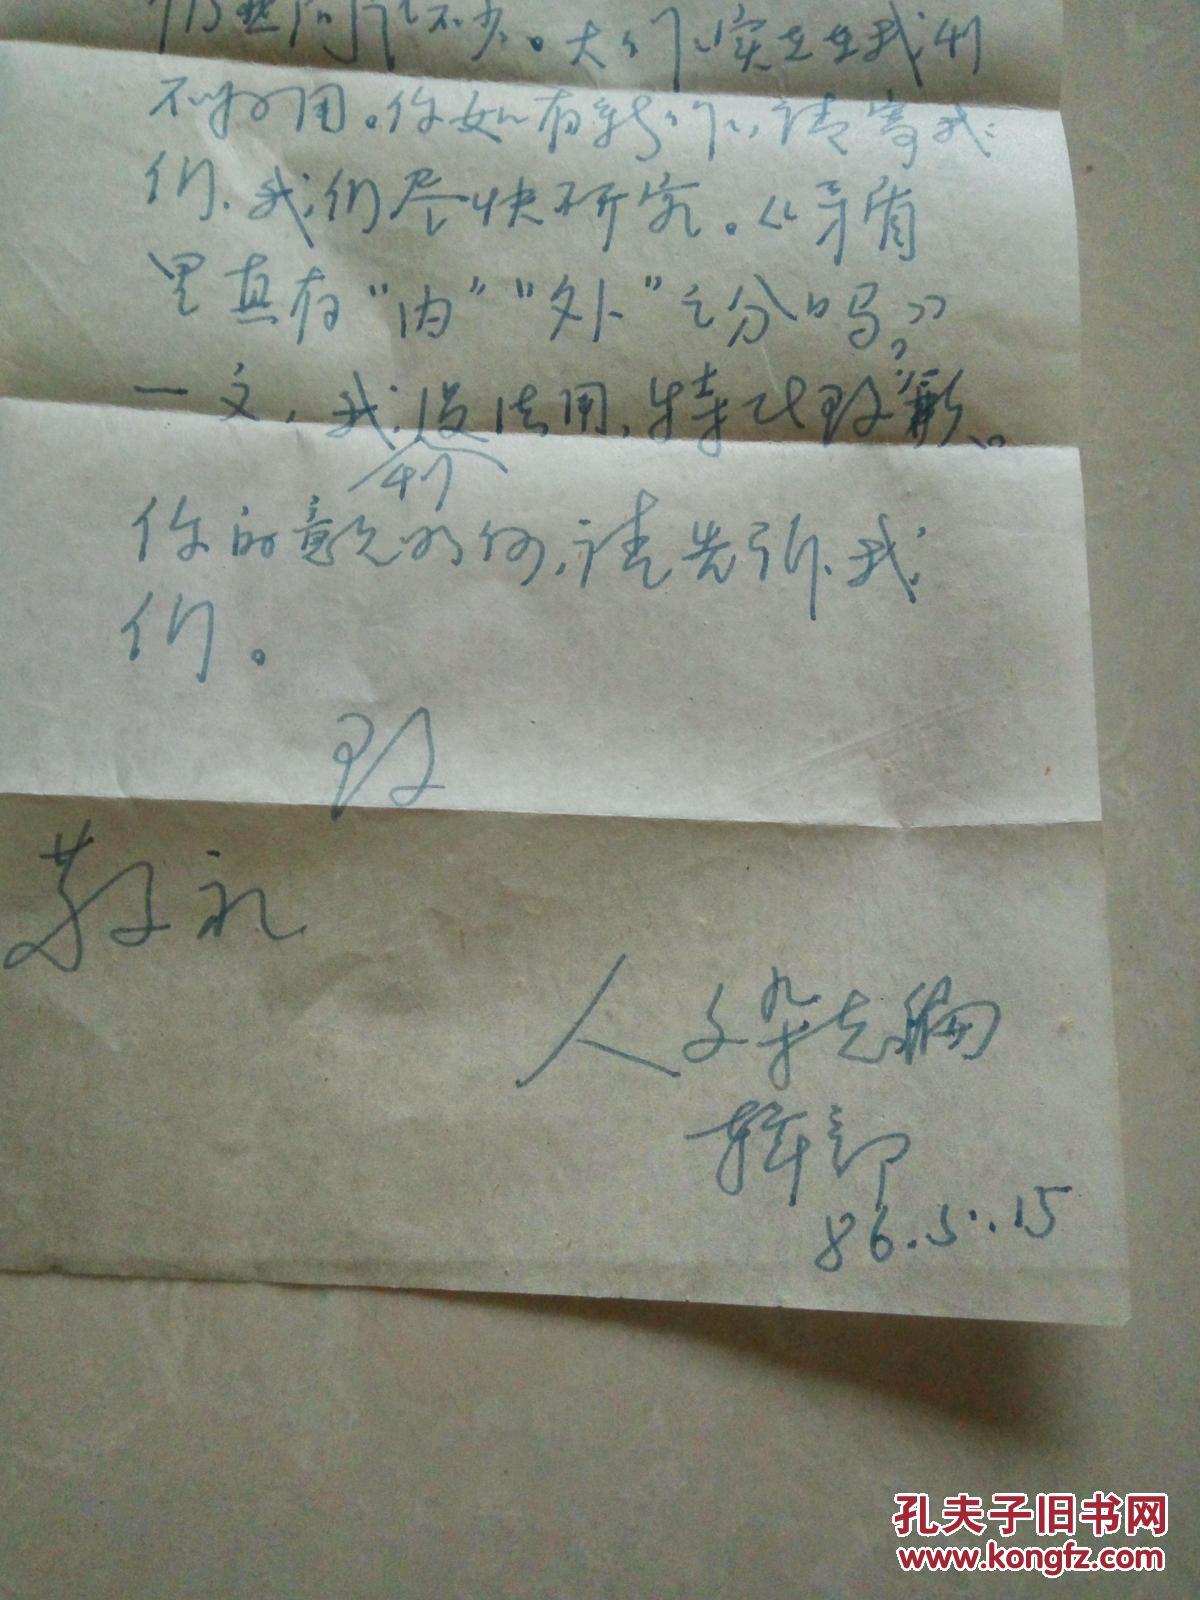 不少。大作实在在我刊
不好用。你如有新作,请寄我
们、我们尽快研究。《矛盾
里真有“内”“外”之分吗?》
一文,我刊没法用,特此致歉。
你的意见如何,请先告诉我
们。
致
敬礼
人文杂志编
辑部
86.5.15
孔夫子旧书网
www.kongfz.com